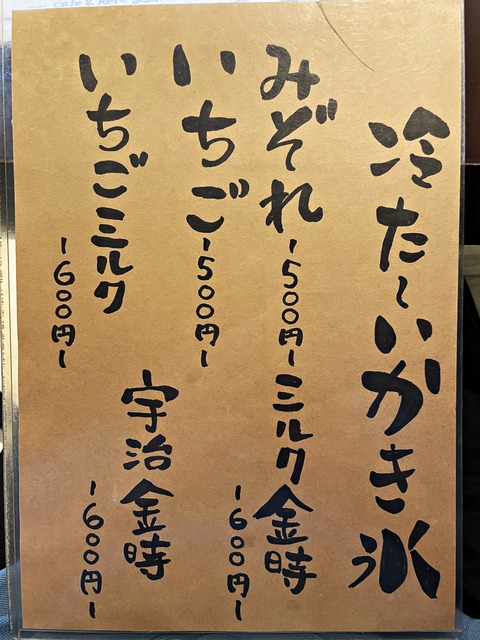 冷た〜いかき氷
みぞれ
-500円-
ミルク金時
-600円-
いちご
-500円-
宇治金時
-600円-
いちごミルク
-600円-